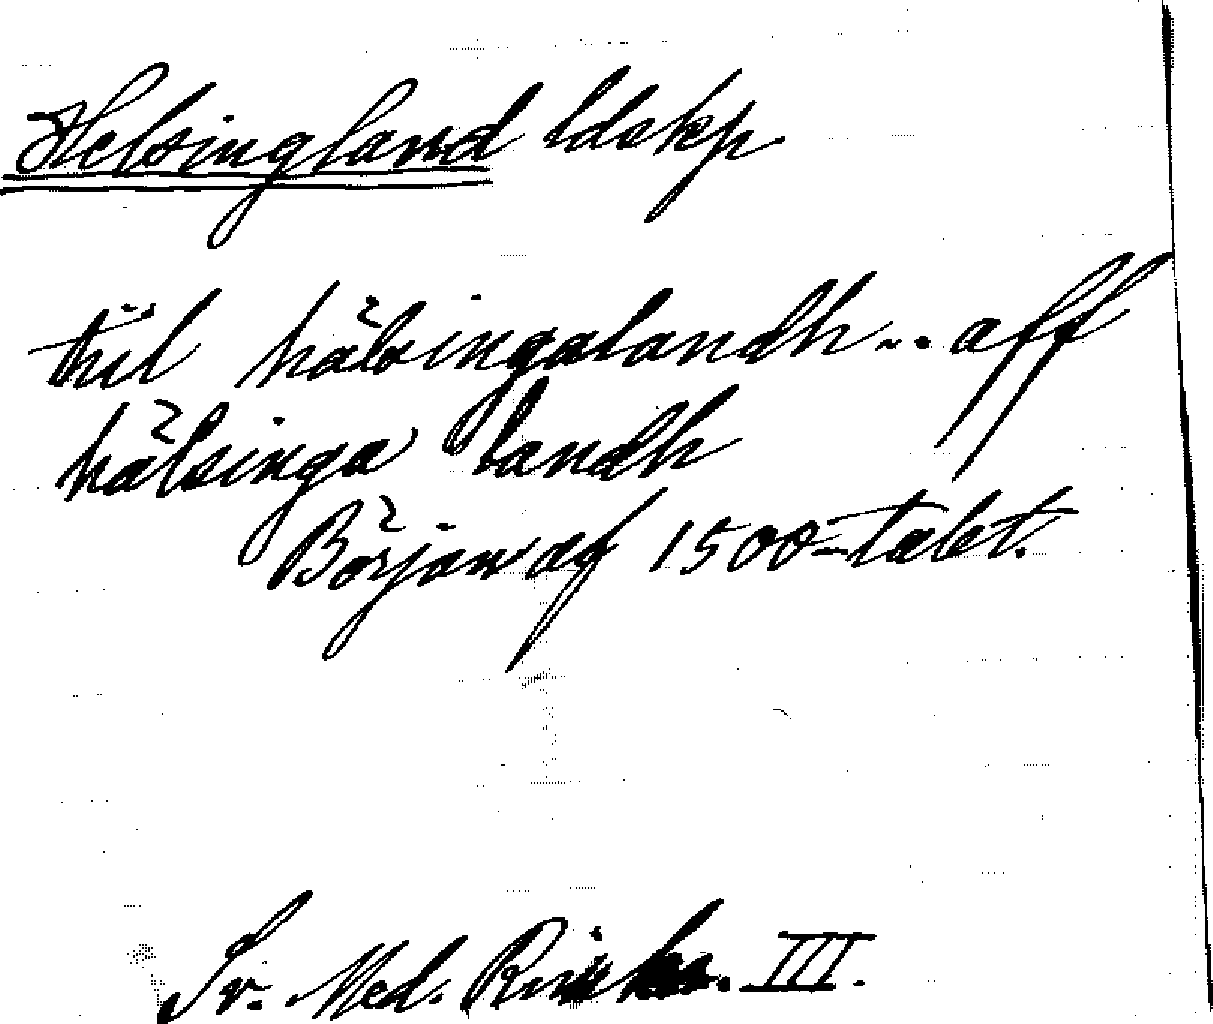 Helsingland ldskp
til hälsingalandh... aff
hälsinga landh
Början af 1500-talet.
Sv. Med. III.